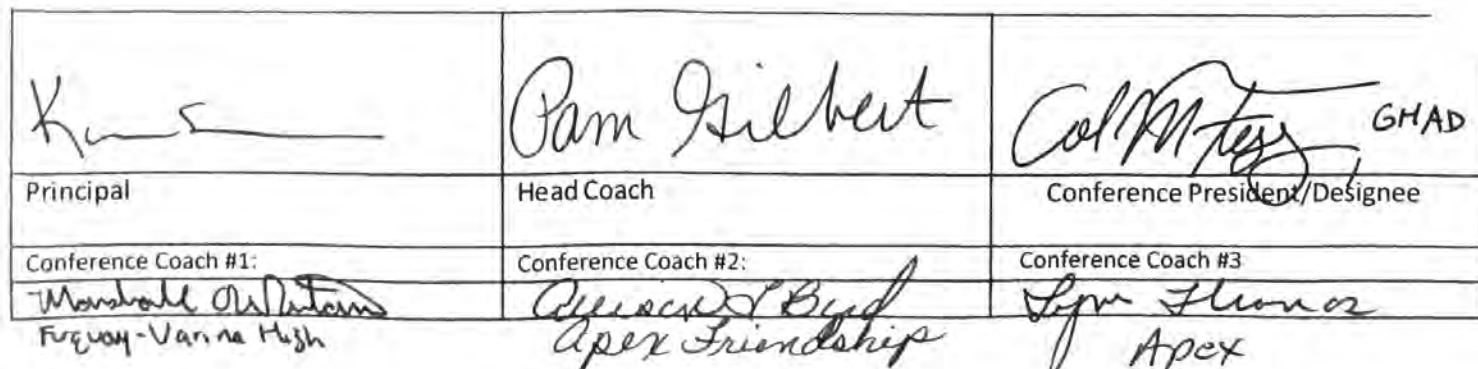 Pam Gilbert
GHAD
Principal Head Coach Conference President/Designee
Conference Coach #1: Conference Coach #2: Conference Coach #3
Marshall
Allison L Byrd
Lynn Thomas
Fuquay-Varina High
Apex Friendship
Apex